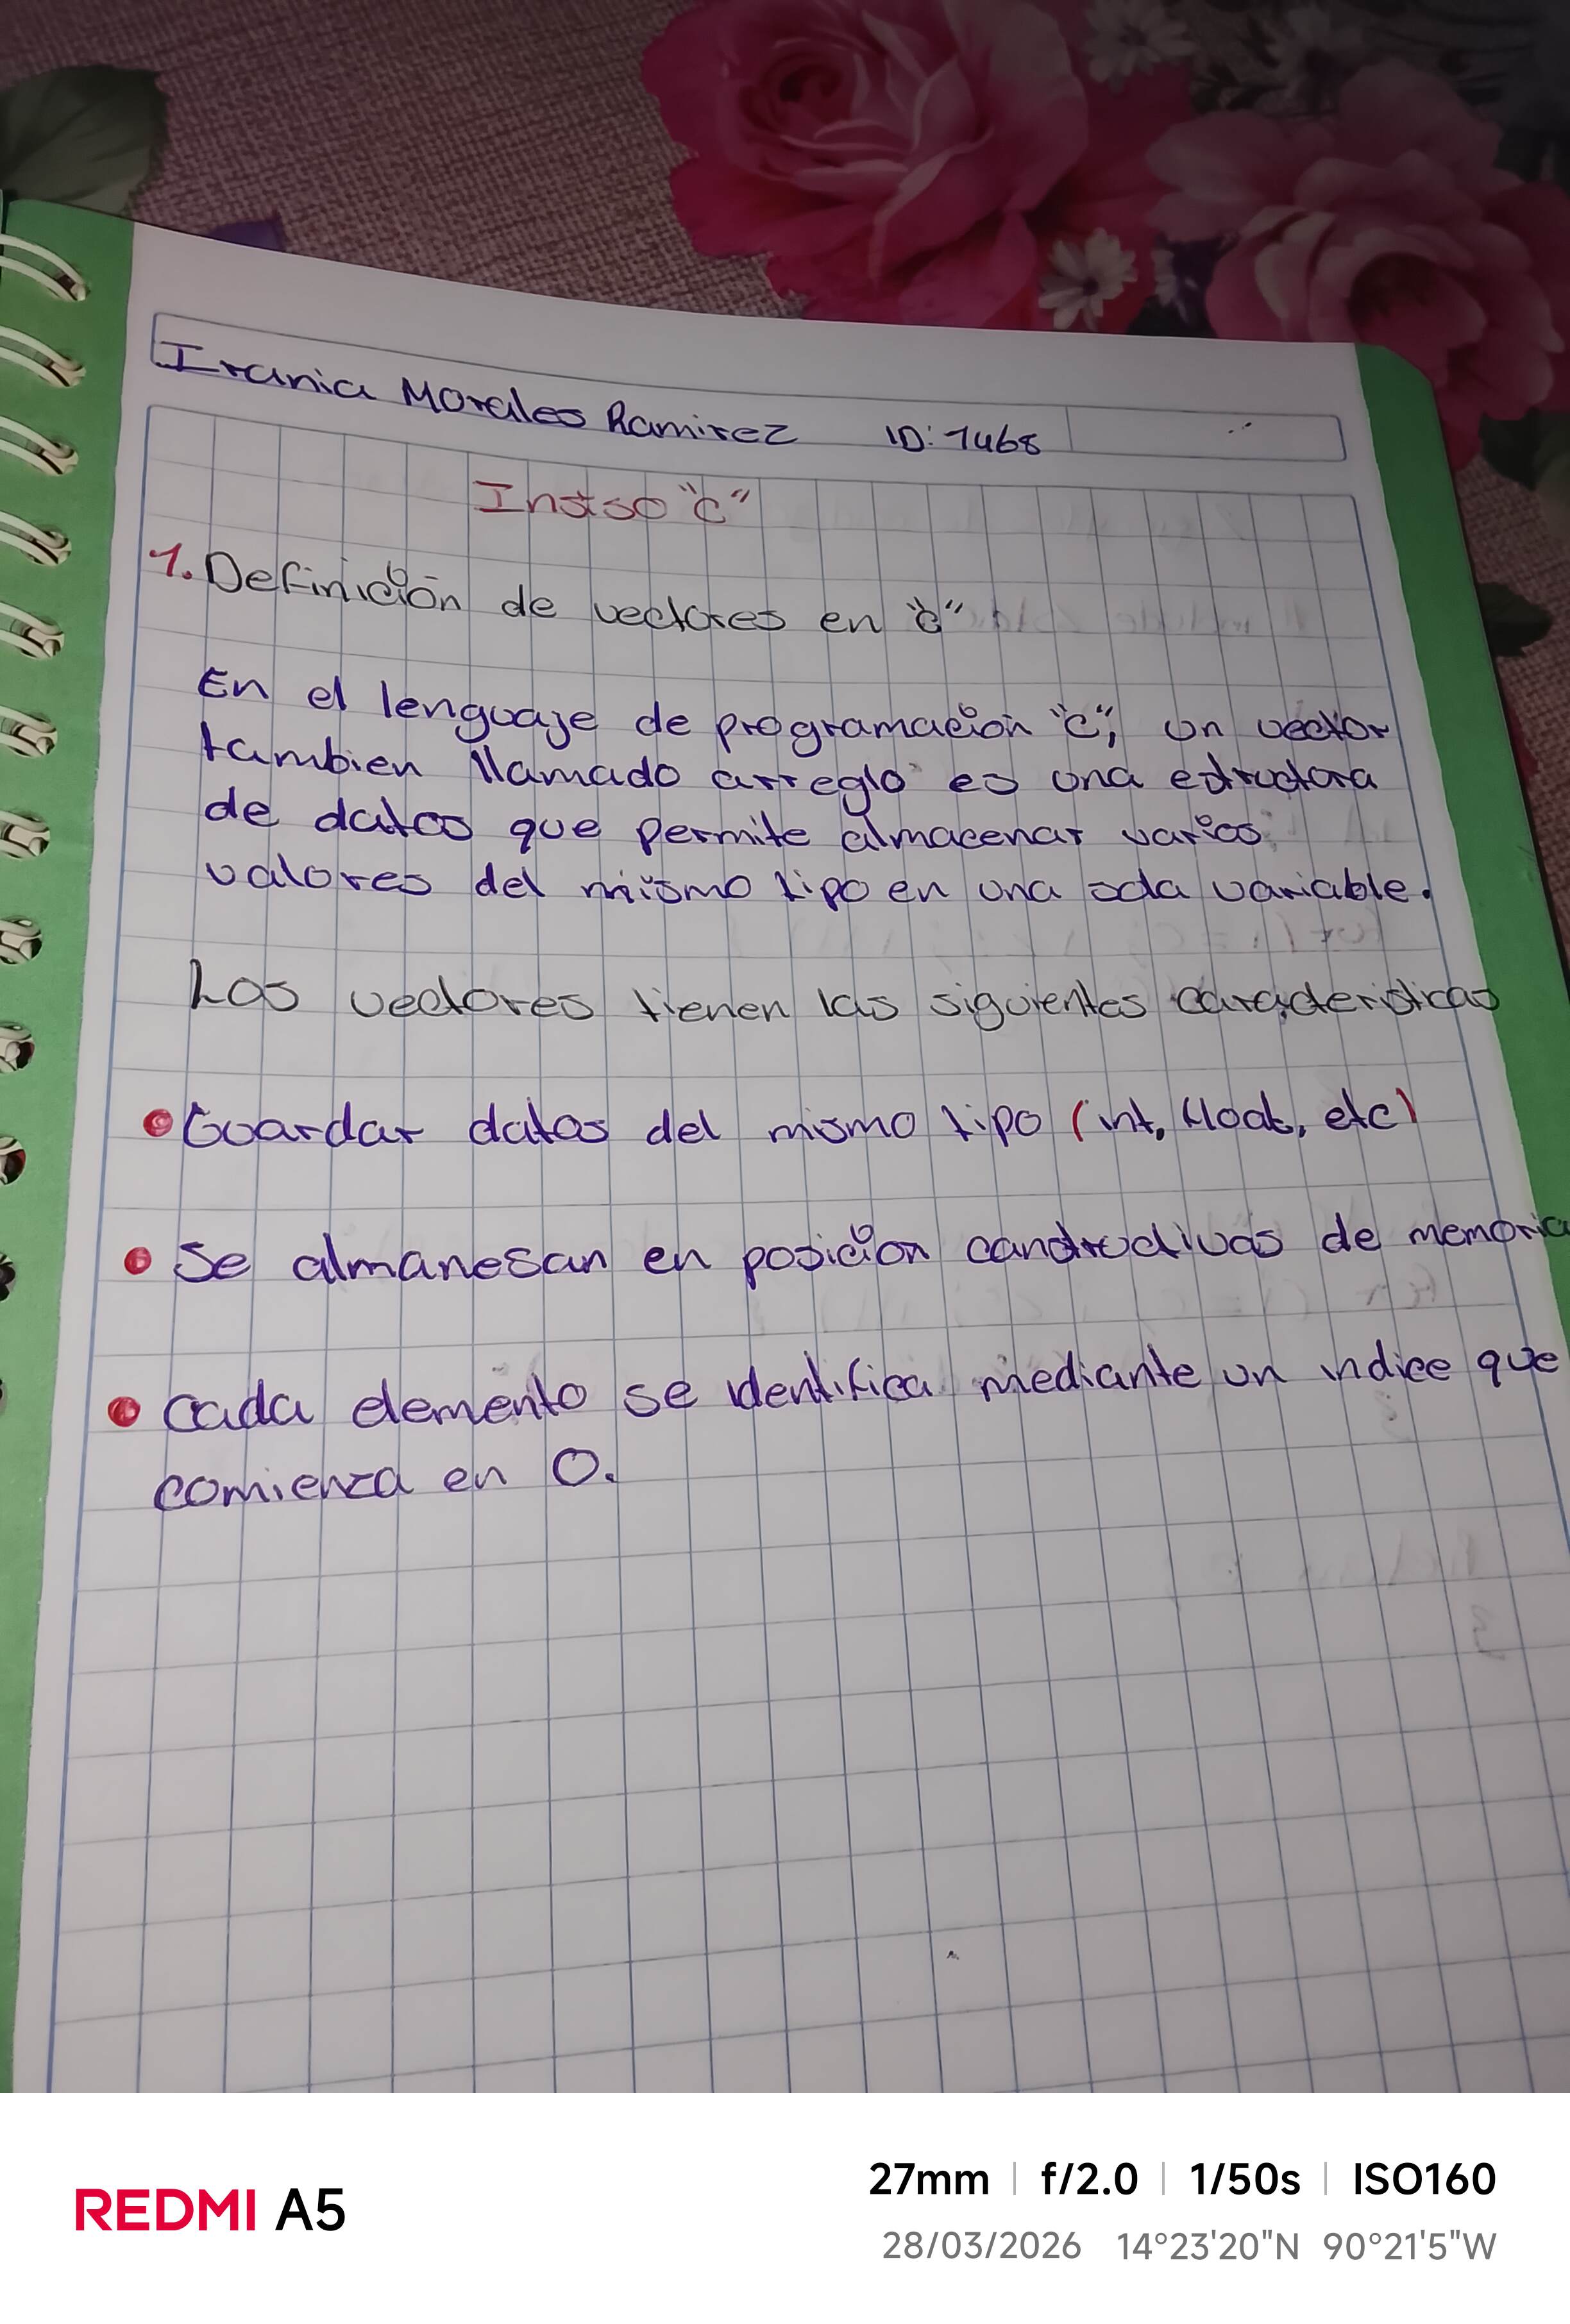 Irania Morales Ramirez ID: 1468
Instso "c"
1. Definición de vectores en "c"
En el lenguaje de programación "c", un vector
tambien llamado arreglo es una estructura
de datos que permite almacenar varios
valores del mismo tipo en una sola variable.
Los vectores tienen las siguientes caracteristicas
• Guardar datos del mismo tipo (int, float, etc)
• Se almanesan en posición de memoria
• cada elemento se identifica mediante un indice que
comienza en 0.
REDMI A5
27mm | f/2.0 | 1/50s | ISO160
28/03/2026 14°23'20"N 90°21'5"W